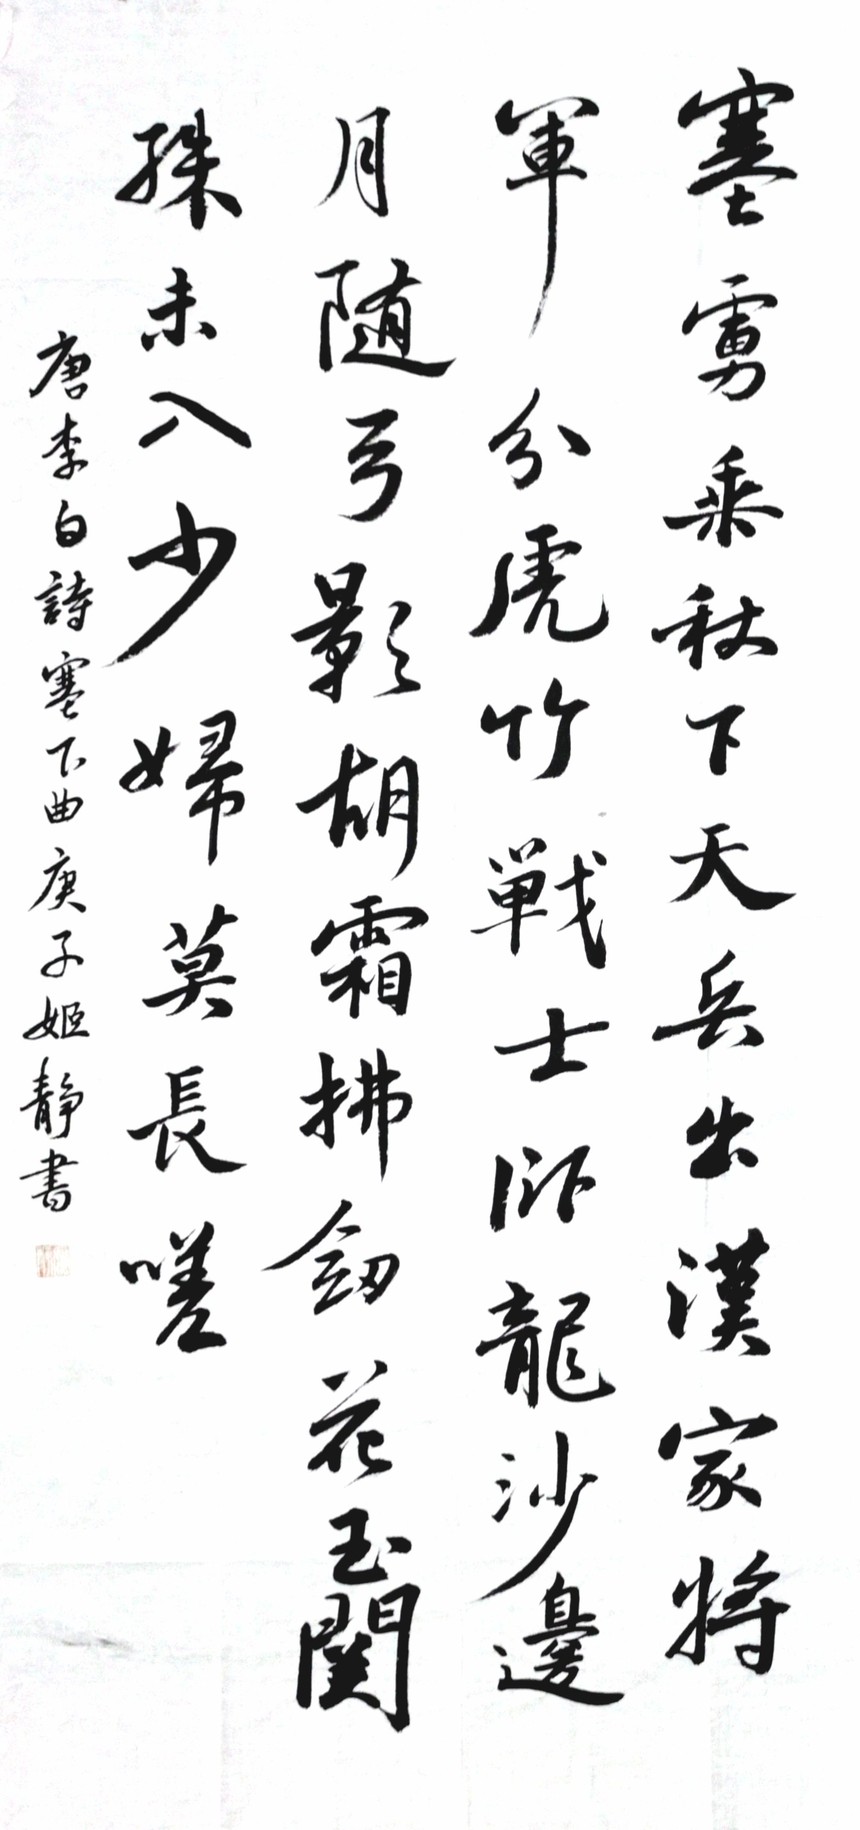 塞虜乘秋下天兵出漢家將
軍分虎竹戰士臥龍沙邊
月随弓影胡霜拂劒花玉關
殊未入少婦莫長嗟
唐李白詩塞下曲庚子姬靜書